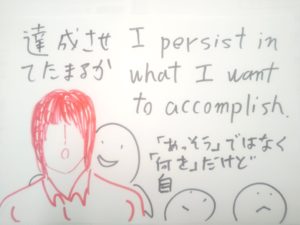 達成させ
てたまるか
I persist in
what I want
to accomplish.
「あっそう」ではなく
「何を」だけど
自